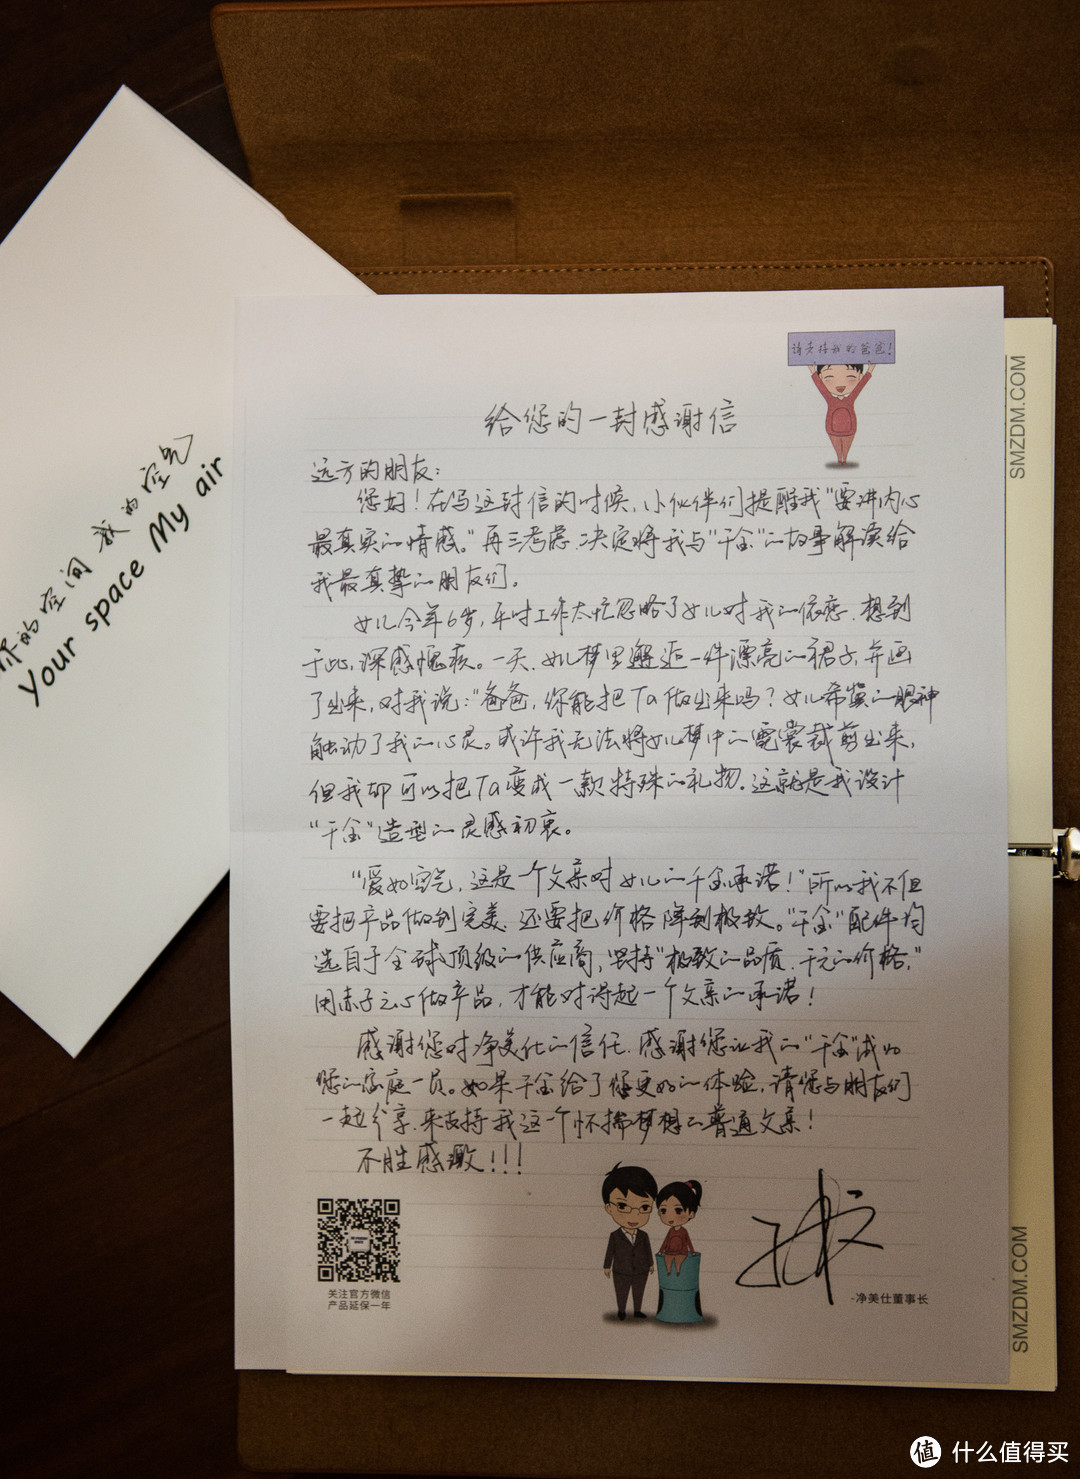 请支持我的爸爸!
给您的一封感谢信
远方的朋友:
您好!在写这封信的时候,小伙伴们提醒我"要讲内心
最真实的情感。"再三考虑,决定将我与"千金"的故事解读给
我最真挚的朋友们。
女儿今年6岁,平时工作太忙忽略了女儿对我的依恋.想到
于此,深感愧疚。一天,女儿梦里邂逅一件漂亮的裙子,并画
了出来,对我说:"爸爸,你能把Ta做出来吗?女儿希冀的眼神
触动了我的心灵。或许我无法将女儿梦中的霓裳裁剪出来,
但我却可以把Ta变成一款特殊的礼物.这就是我设计
"千金"造型的灵感初衷。
"爱如空气,这是一个父亲对女儿的千金承诺!"所以我不但
要把产品做到完美,还要把价格降到极致。"千金"配件均
选自于全球顶级的供应商,坚持"极致的品质,千元的价格,"
用赤子之心做产品,才能对得起一个父亲的承诺!
感谢您对净美仕的信任.感谢您让我的"千金"成为
您的家庭一员。如果千金给了您更好的体验,请您与朋友们
一起分享,来支持我这个怀揣梦想的普通父亲!
不胜感激!!!
关注官方微信
产品延保一年
-净美仕董事长
你的空间 我的空气
Your space My air
SMZDM.COM
SMZDM.COM
值 什么值得买